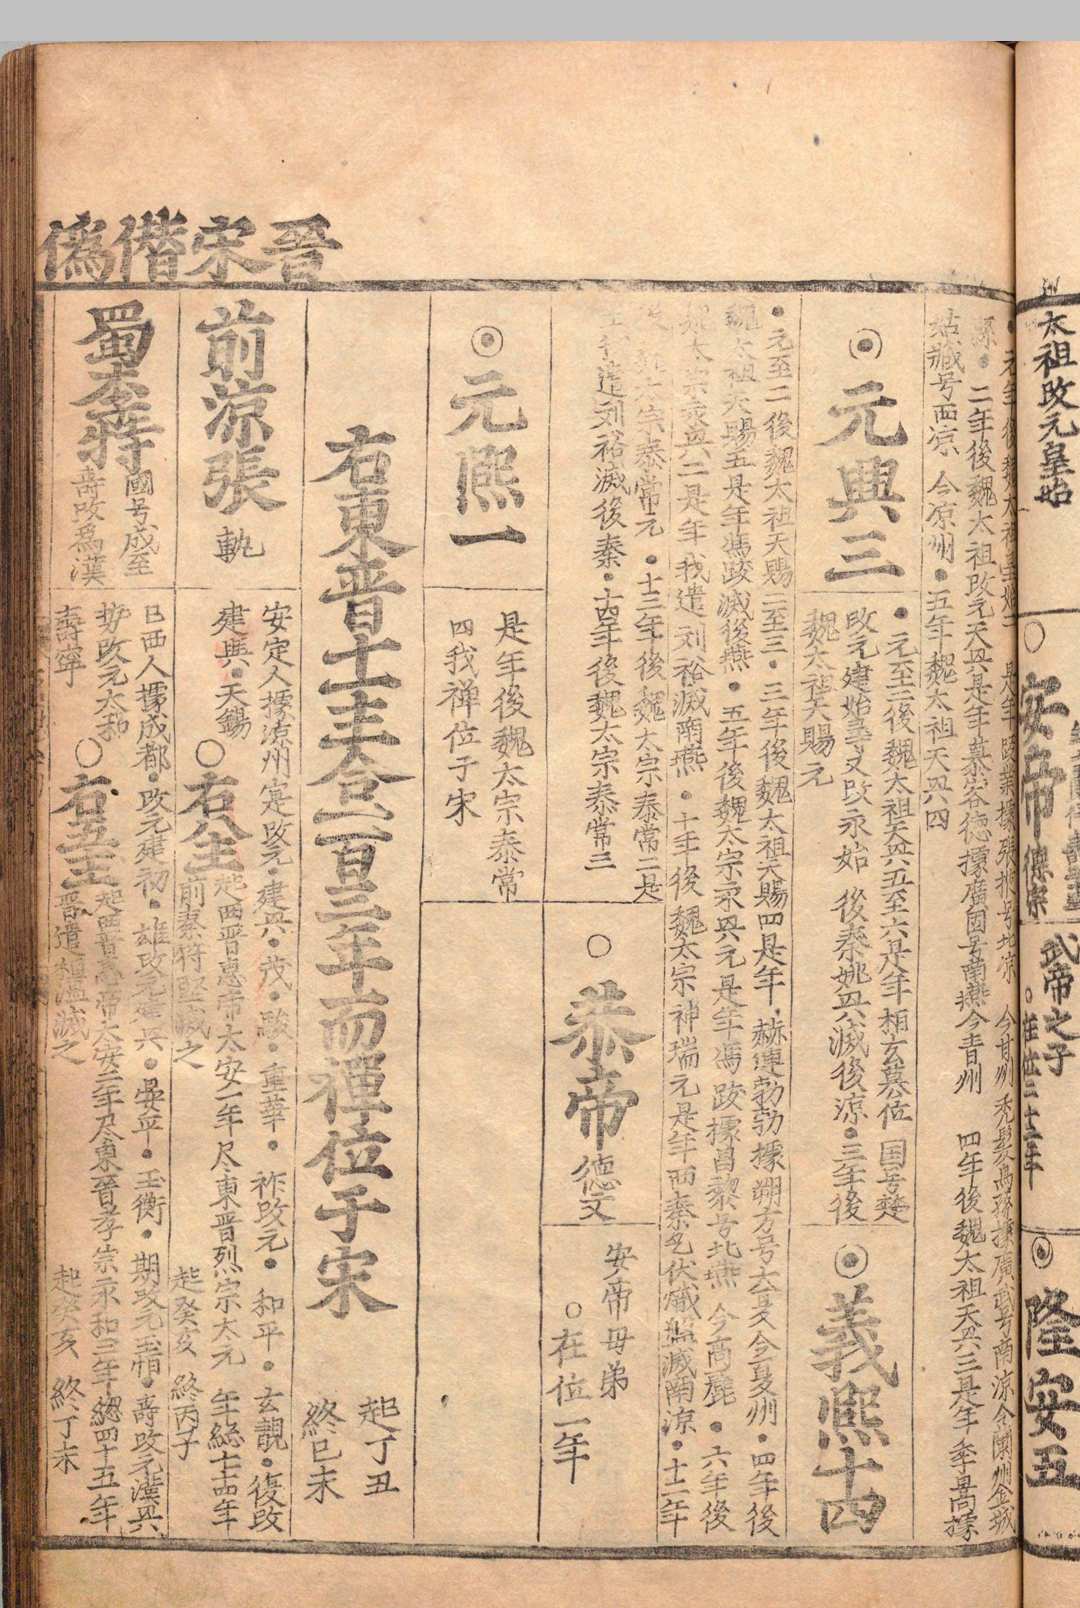 太祖改元皇始
安帝
武帝之子
隆安五
晉宋僭偽
元年後魏太祖皇始二
二年後魏太祖改元天兴是年慕容德據廣固号南燕今青州
四年後魏太祖天兴三是年季暠據
姑藏号西凉 今凉州・五年魏太祖天兴四
⊙元興三
・元至三後魏太祖天兴五至六是年相玄墓位 国号楚
改元建始 又改永始 後秦姚兴滅後凉・三年後
魏太祖天賜元
⊙義熙十四
・元至二後魏太祖天賜二至三・三年後魏太祖天賜四是年・赫連勃勃據朔方号大夏今夏州・四年後
魏太祖天賜五是年馮跋滅後燕・五年後魏太宗永兴元是年馮跋據昌黎号北燕 今高麗・六年後
魏太宗永兴二是年我遣刘裕滅南燕・十年後魏太宗神瑞元是年西秦乞伏熾盤滅南凉・十二年
後魏太宗泰常元・十三年後魏太宗泰常二是
年我遣刘裕滅後秦・十四年後魏太宗泰常三
○恭帝德文
安帝母弟
○在位一年
⊙元熙一
是年後魏太宗泰常
四我禅位于宋
右東晋十一主合一百三年而禪位于宋
起丁丑
終已未
前凉張軌
安定人據凉州寔改元・建兴・茂・駿・重華・祚改元・和平・玄靚・復改
建興・天錫
○右八主
起西晋惠帝太安一年尽東晋烈宗太元 年総七十四年
前秦苻堅滅之
起癸亥 終丙子
蜀李特
國号成至
壽改為漢
巴西人據成都・改元建初・雄改元建兴・晏平・玉衡・期改元玉恒・壽改元漢兴
势改元太和
○右五主
起西晋惠帝大安二年尽東晉孝宗永和三年総四十五年
壽寧
晋遣桓温滅之
起癸亥 終丁未